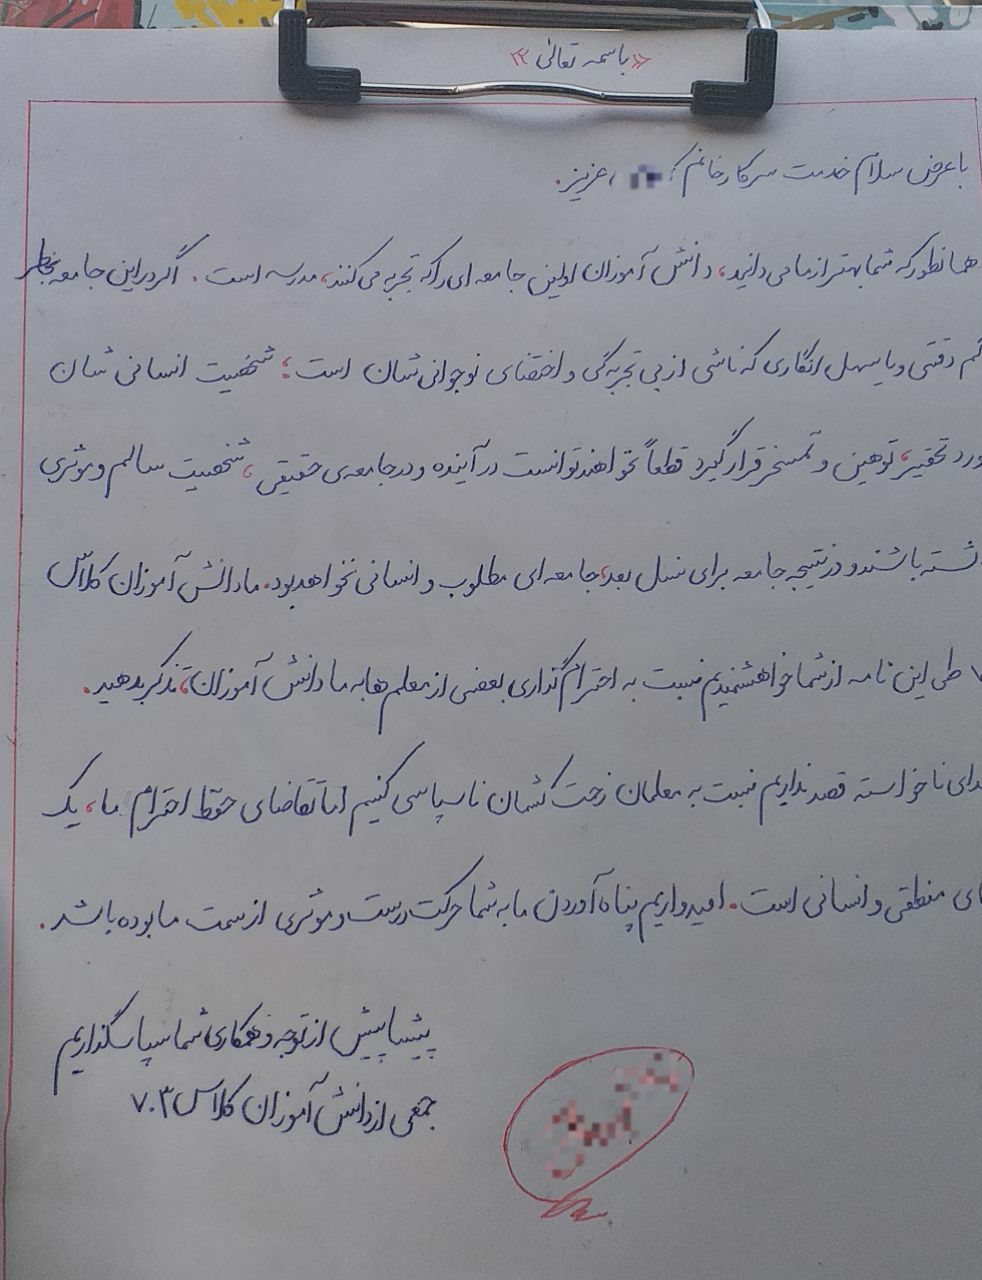 «باسمه تعالی»
با عرض سلام خدمت سرکار خانم عزیز.
همانطور که شما بهتر از ما می دانید، دانش آموزان اولین جامعه ای را که تجربه می کنند، مدرسه است. اگر در این جامعه بخاطر
کم دقتی و یا سهل انگاری که ناشی از بی تجربه گی و اقتضای نوجوانی شان است؛ شخصیت انسانی شان
مورد تحقیر، توهین و تمسخر قرار گیرد قطعاً نخواهند توانست در آینده و در جامعه ی حقیقی، شخصیت سالم و موثری
داشته باشند و در نتیجه جامعه برای نسل بعد، جامعه ای مطلوب و انسانی نخواهد بود. ما دانش آموزان کلاس
طی این نامه از شما خواهشمندیم نسبت به احترام گذاری بعضی از معلم ها به ما دانش آموزان، تذکر بدهید.
خدای ناخواسته قصد نداریم نسبت به معلمان زحمت کشمان ناسپاسی کنیم اما تقاضای حفظ احترام ما، یک
منطقی و انسانی است. امیدواریم پناه آوردن ما به شما حرکت درست و موثری از سمت ما بوده باشد.
پیشاپیش از توجه و همکاری شما سپاسگذاریم
جمعی از دانش آموزان کلاس ۷۰۳